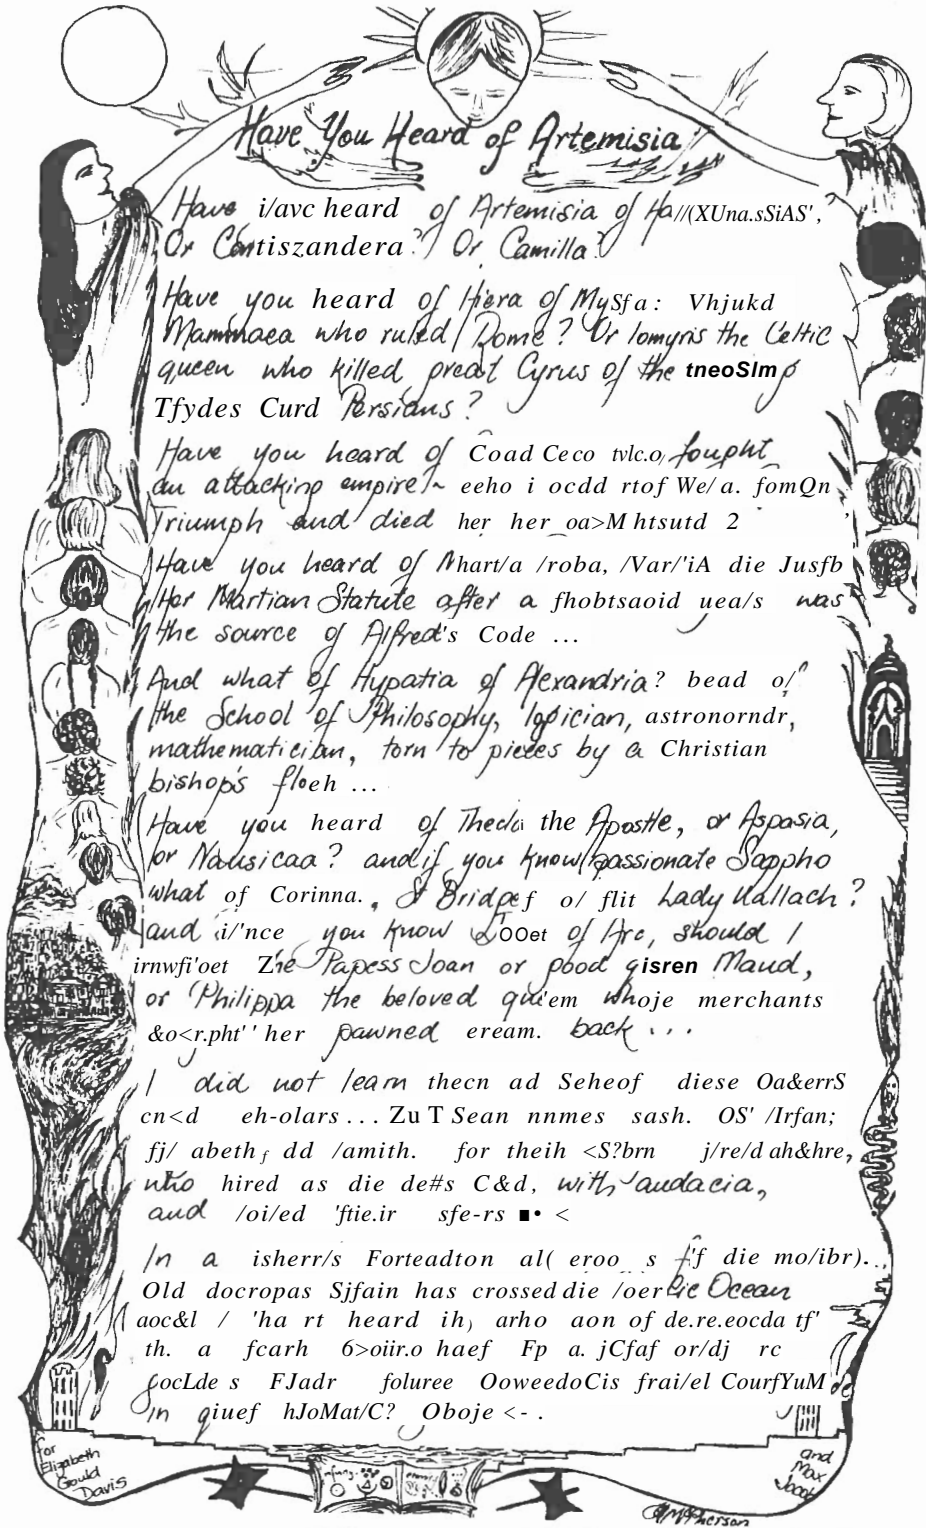 Have You Heard of Artemisia
Have i/avc heard of Artemisia of Ha//(XUna.sSiAS',
Or Cantiszandera? Or Camilla?
Have you heard of Hiera of MySfa: Vhjukd
Mammaea who ruled Rome? Or Tomyris the Celtic
queen who killed great Cyrus of the tneoSlm
Tfydes Curd Persians?
Have you heard of Coad Ceco tvlc.o, fought
an attacking empire eeho i ocdd rtof We/a. fomQn
Triumph and died her her oa>M htsutd 2
Have you heard of Nhart/a /roba, /Var/'iA die Jusfb
Her Martian Statute after a fhobtsaoid uea/s was
the source of Alfred's Code ...
And what of Hypatia of Alexandria? bead o/
the School of Philosophy, logician, astronorndr,
mathematician, torn to pieces by a Christian
bishop's floeh ...
Have you heard of Thecla the Apostle, or Aspasia,
or Nausicaa? and if you know passionate Sappho
what of Corinna., St Bridgef o/ flit Lady Uallach?
and i/'nce you know OOet of Arc, should I
irnwfi'oet Zne Papess Joan or good gisren Maud,
or Philippa the beloved qu'em whoje merchants
&o<r.pht'' her pawned eream. back ...
I did not learn thecn ad Seheof diese Oa&errS
cn<d eh-olars ... Zu T Sean nnmes sash. OS' /Irfan;
fj/ abeth f dd /amith. for theih <S?brn j/re/d ah&hre,
who hired as die de#s C&d, with audacia,
and /oi/ed 'ftie.ir sfe-rs ■• <
In a isherr/s Forteadton al( eroo s f'f die mo/ibr)...
Old docropas Sjfain has crossed die /oer lic Ocean
aoc&l / 'ha rt heard ih) arho aon of de.re.eocda tf'
th. a fcarh 6>oiir.o haef Fp a. jCfaf or/dj rc
ocLde s FJadr foluree OoweedoCis frai/el CourfYuM de
in giuef hJoMat/C? Oboje <- .
for
Elizabeth
Gould
Davis
and
Max
Jacob
McPherson